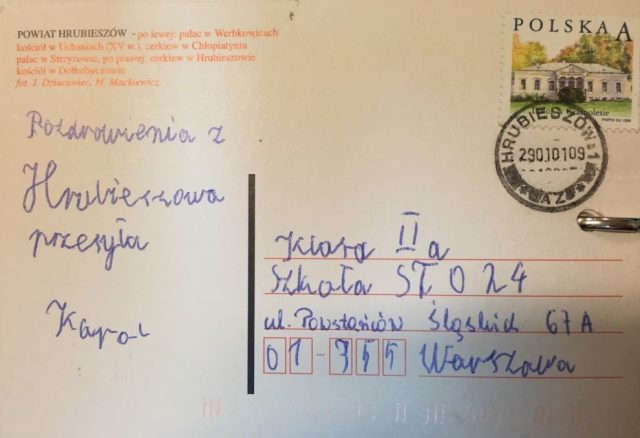 POWIAT HRUBIESZÓW - po lewej: pałac w Werbkowicach
kościół w Uchaniach (XV w.), cerkiew w Chłopiatynie
pałac w Strzyżowie, po prawej: cerkiew w Hrubieszowie
kościół w Dołhobyczowie
fot. J. Dziurawiec, M. Mackiewicz
Pozdrowienia z
Hrubieszowa
przesyła
Karol
POLSKA A
HRUBIESZÓW 1
290101 09
AZ
Klasa II a
Szkoła STO 24
ul. Powstańców Śląskich 67A
01-355 Warszawa